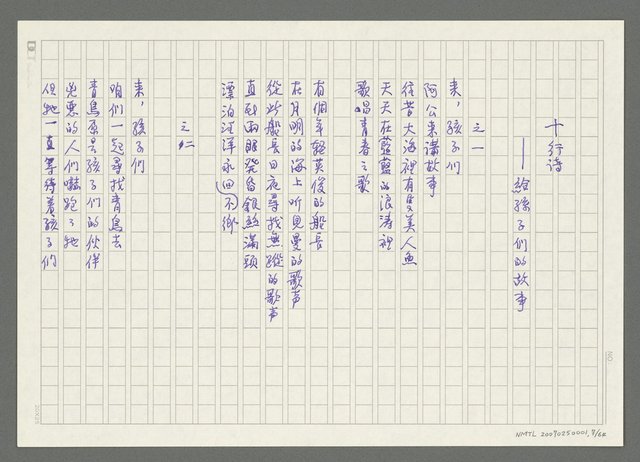 十行詩
——給孫子們的故事
之一
來，孩子們
阿公來講故事
從昔大海裡有隻美人魚
天天在藍藍的浪濤裡
歌唱青春之歌
有個年輕英俊的船長
在月明的海上听見曼的歌声
從此船長日夜尋找無蹤的歌声
直到兩眼發昏銀絲滿頭
漂泊汪洋永回不鄉
之二
來，孩子們
咱們一起尋找青鳥去
青鳥原是孩子們的伙伴
兇惡的人們嚇跑了她
但她一直等待着孩子們
NO.
20X25
NMTL 20070250001, 7/64